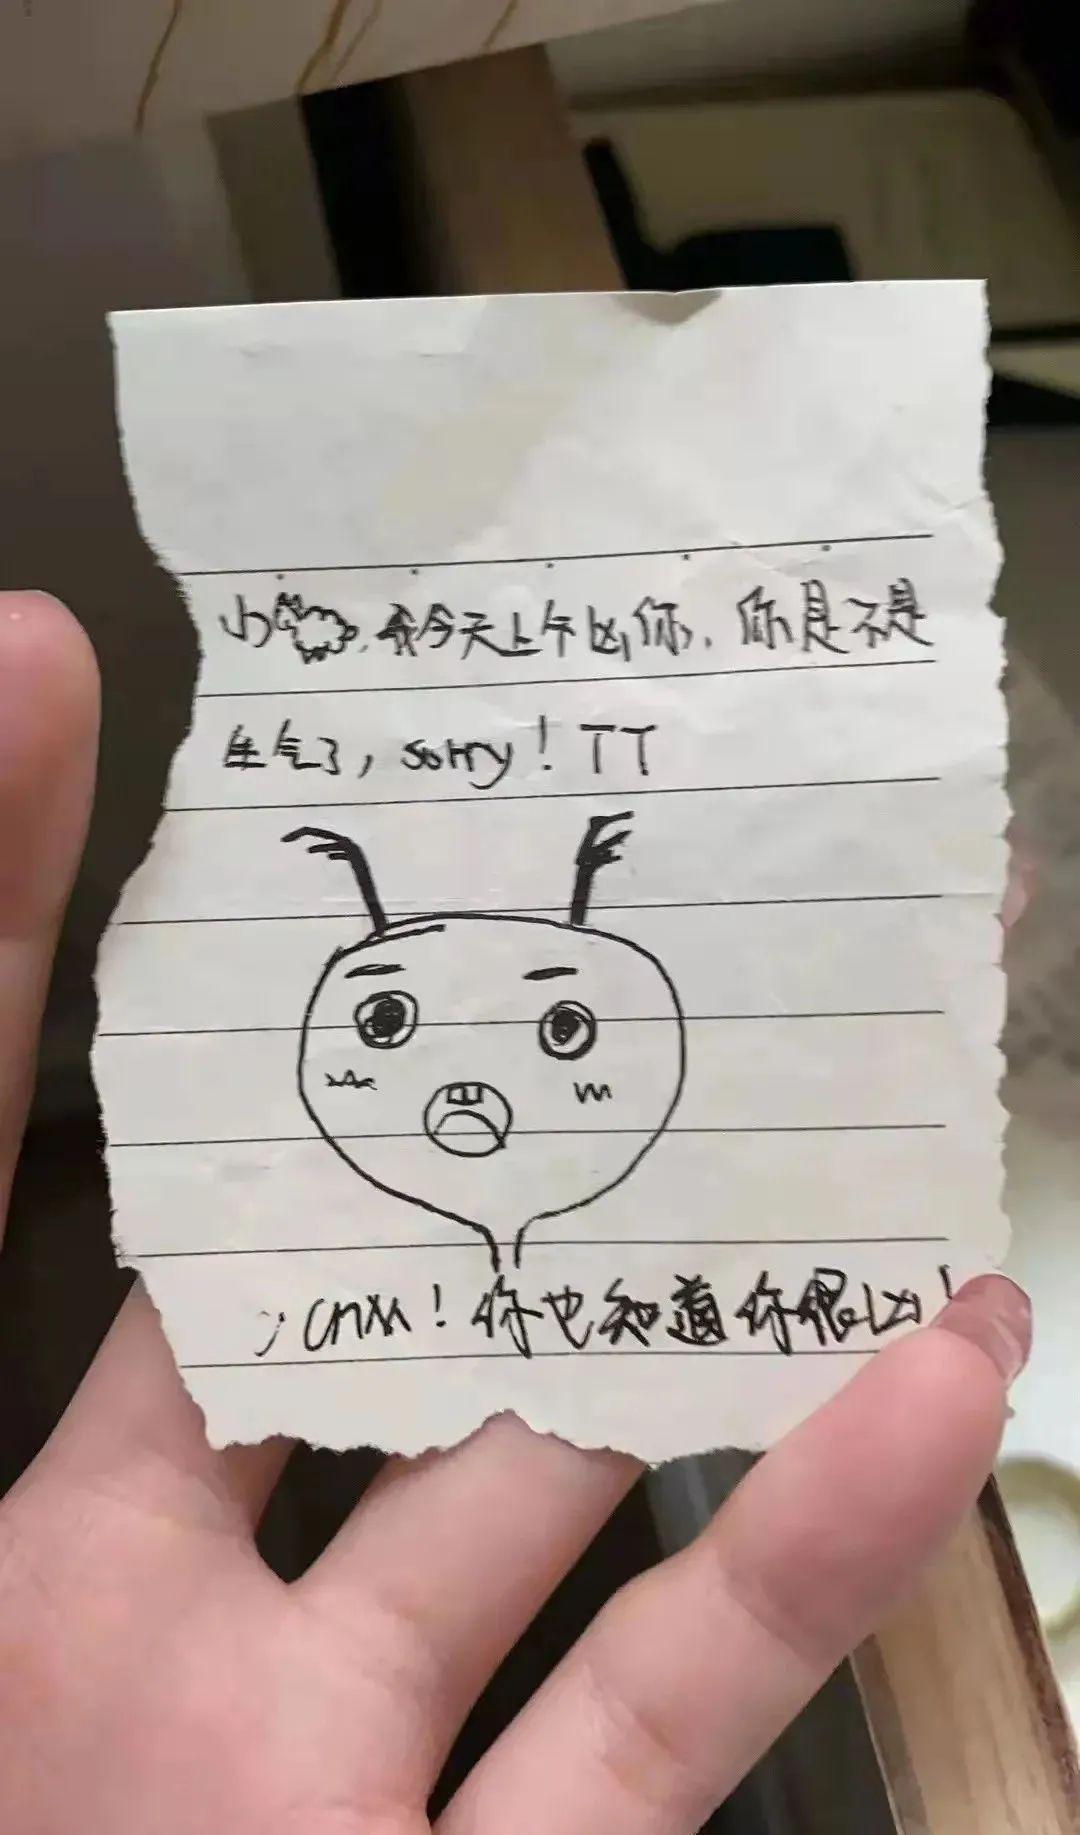 小,我今天上午凶你,你是不是
生气了,sorry!TT
你也知道你很凶!